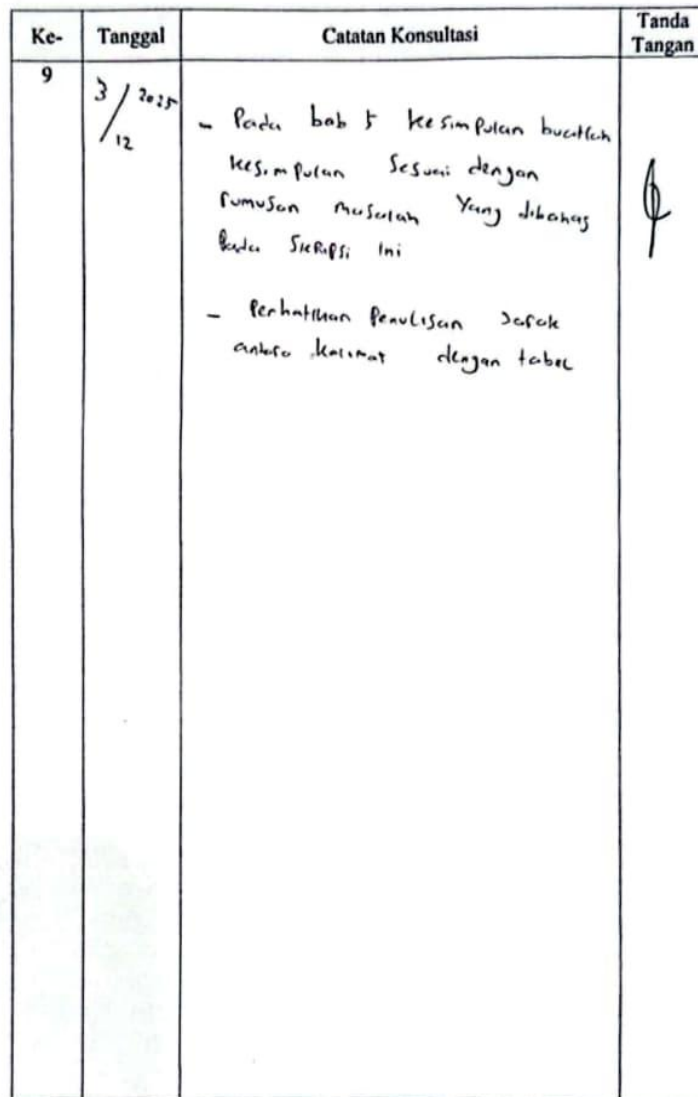 Ke- Tanggal Catatan Konsultasi Tanda Tangan
9
3/12 2025
- Pada bab 5 kesimpulan buatlah
kesimpulan sesuai dengan
rumusan masalah yang dibahas
pada skripsi ini
- Perhatikan penulisan jarak
antara kalimat dengan tabel